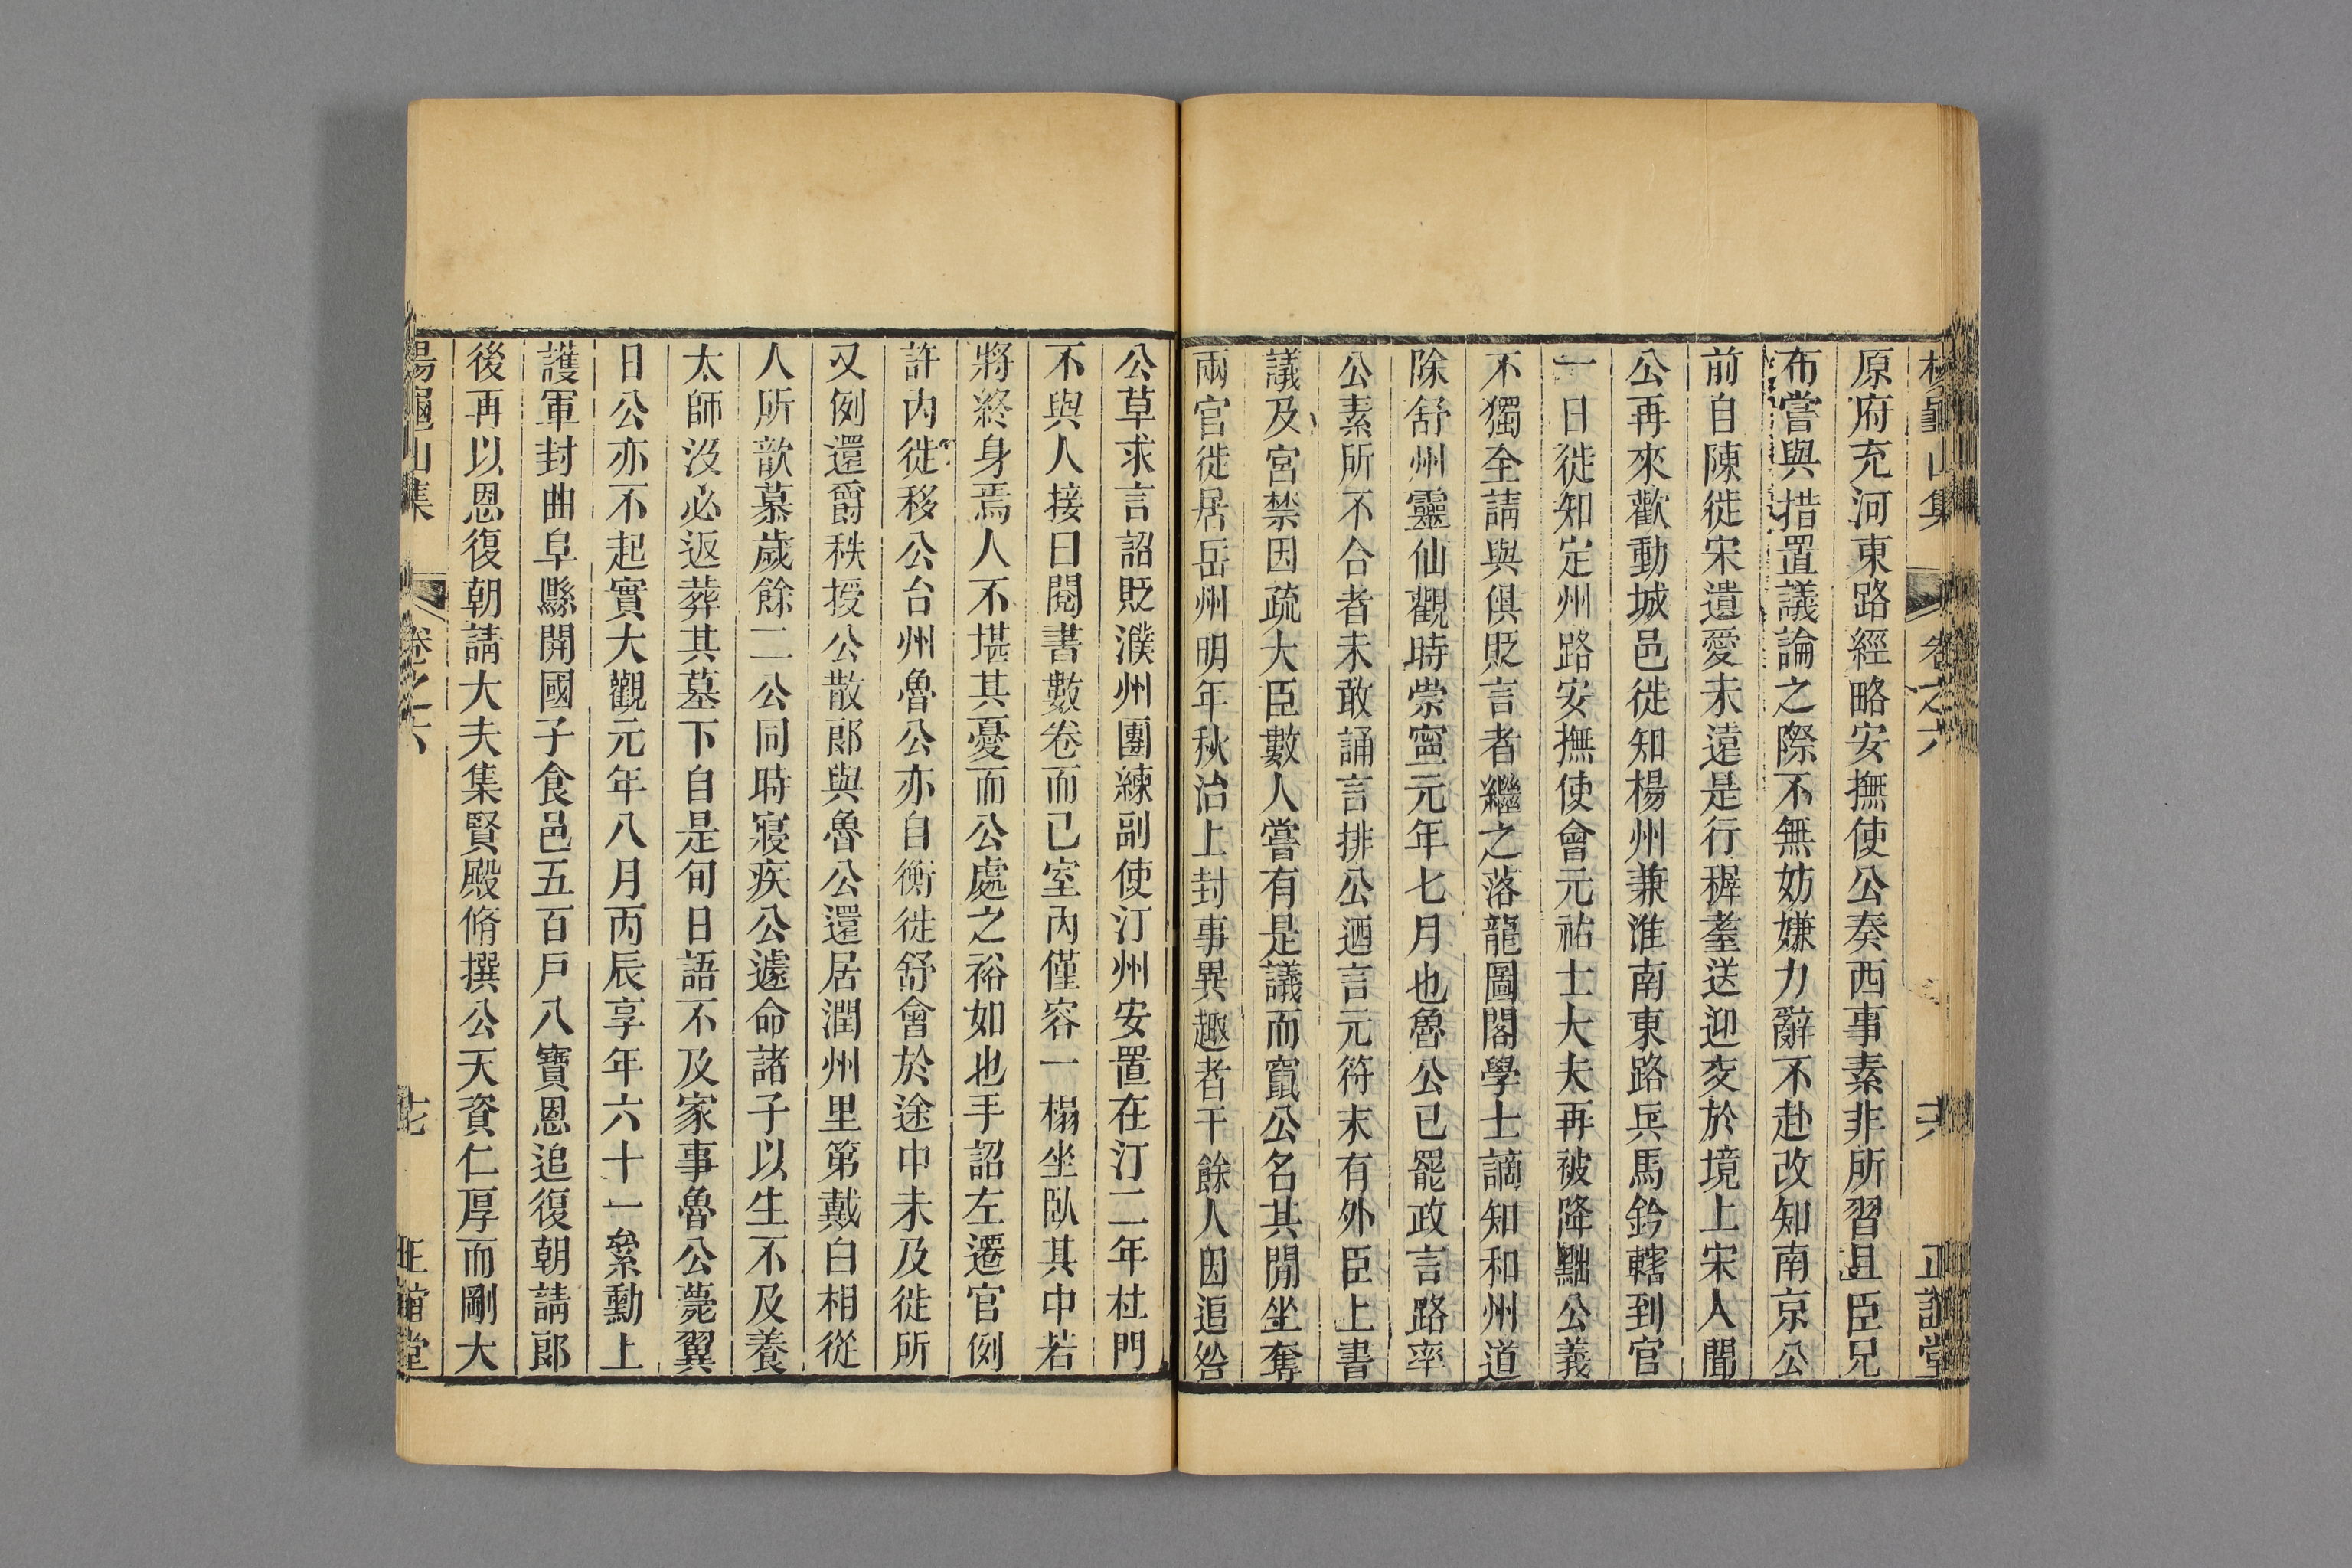 楊龜山集 卷之六 六 正誼堂
原府充河東路經略安撫使公奏西事素非所習且臣兄
布嘗與措置議論之際不無妨嫌力辭不赴改知南京公
前自陳徙宋遺愛未遠是行稺耋送迎交於境上宋人聞
公再來歡動城邑徙知楊州兼淮南東路兵馬鈐轄到官
一日徙知定州路安撫使會元祐士大夫再被降黜公義
不獨全請與俱貶言者繼之落龍圖閣學士謫知和州道
除舒州靈仙觀時崇寧元年七月也魯公已罷政言路率
公素所不合者未敢誦言排公迺言元符末有外臣上書
議及宮禁因疏大臣數人嘗有是議而竄公名其間坐奪
兩官徙居岳州明年秋治上封事異趣者千餘人因追咎
公草求言詔貶濮州團練副使汀州安置在汀二年杜門
不與人接日閱書數卷而已室內僅容一榻坐臥其中若
將終身焉人不堪其憂而公處之裕如也手詔左遷官例
許內徙移公台州魯公亦自衡徙舒會於途中未及徙所
又例還爵秩授公散郎與魯公還居潤州里第戴白相從
人所歆慕歲餘二公同時寢疾公遽命諸子以生不及養
太師沒必返葬其墓下自是旬日語不及家事魯公薨翼
日公亦不起實大觀元年八月丙辰享年六十一絫勳上
護軍封曲阜縣開國子食邑五百戶八寶恩追復朝請郎
後再以恩復朝請大夫集賢殿脩撰公天資仁厚而剛大
楊龜山集 卷之六 正誼堂